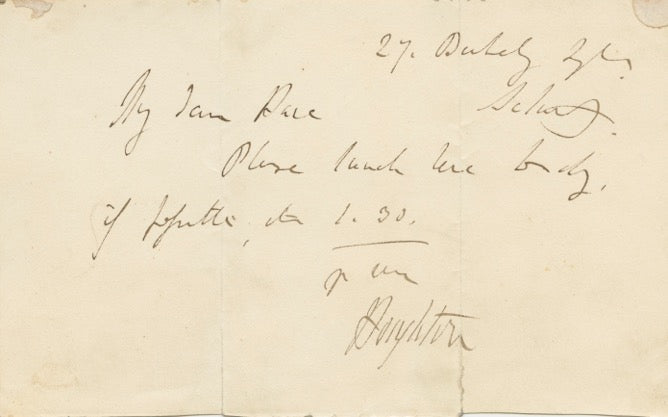 27. Berkeley Sq.
Saturday.
My dear Hare
Please lunch here to-day,
if possible, at 1.30.
Yr
Houghton